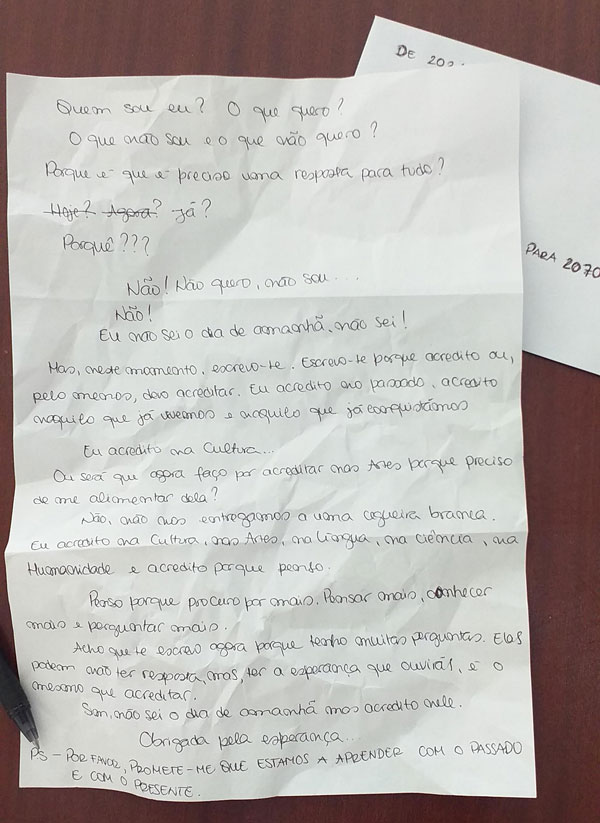 DE 202
PARA 2070
Quem sou eu? O que quero?
O que não sou e o que não quero?
Porque é que é preciso uma resposta para tudo?
Hoje? Agora? Já?
Porquê???
Não! Não quero, não sou...
Não!
Eu não sei o dia de amanhã, não sei!
Mas, neste momento, escrevo-te. Escrevo-te porque acredito ou,
pelo menos, devo acreditar. Eu acredito no passado, acredito
naquilo que já vivemos e naquilo que já conquistámos
Eu acredito na Cultura...
Ou será que agora faço por acreditar nas Artes porque preciso
de me alimentar dela?
Não, não nos entregamos a uma cegueira branca.
Eu acredito na Cultura, nas Artes, na Língua, na ciência, na
Humanidade e acredito porque penso.
Penso porque procuro por mais. Pensar mais, conhecer
mais e perguntar mais.
Acho que te escrevo agora porque tenho muitas perguntas. Elas
podem não ter resposta, mas, ter a esperança que ouvirás, é o
mesmo que acreditar.
Sim, não sei o dia de amanhã mas acredito nele.
Obrigada pela esperança...
PS - POR FAVOR, PROMETE-ME QUE ESTAMOS A APRENDER COM O PASSADO
E COM O PRESENTE.